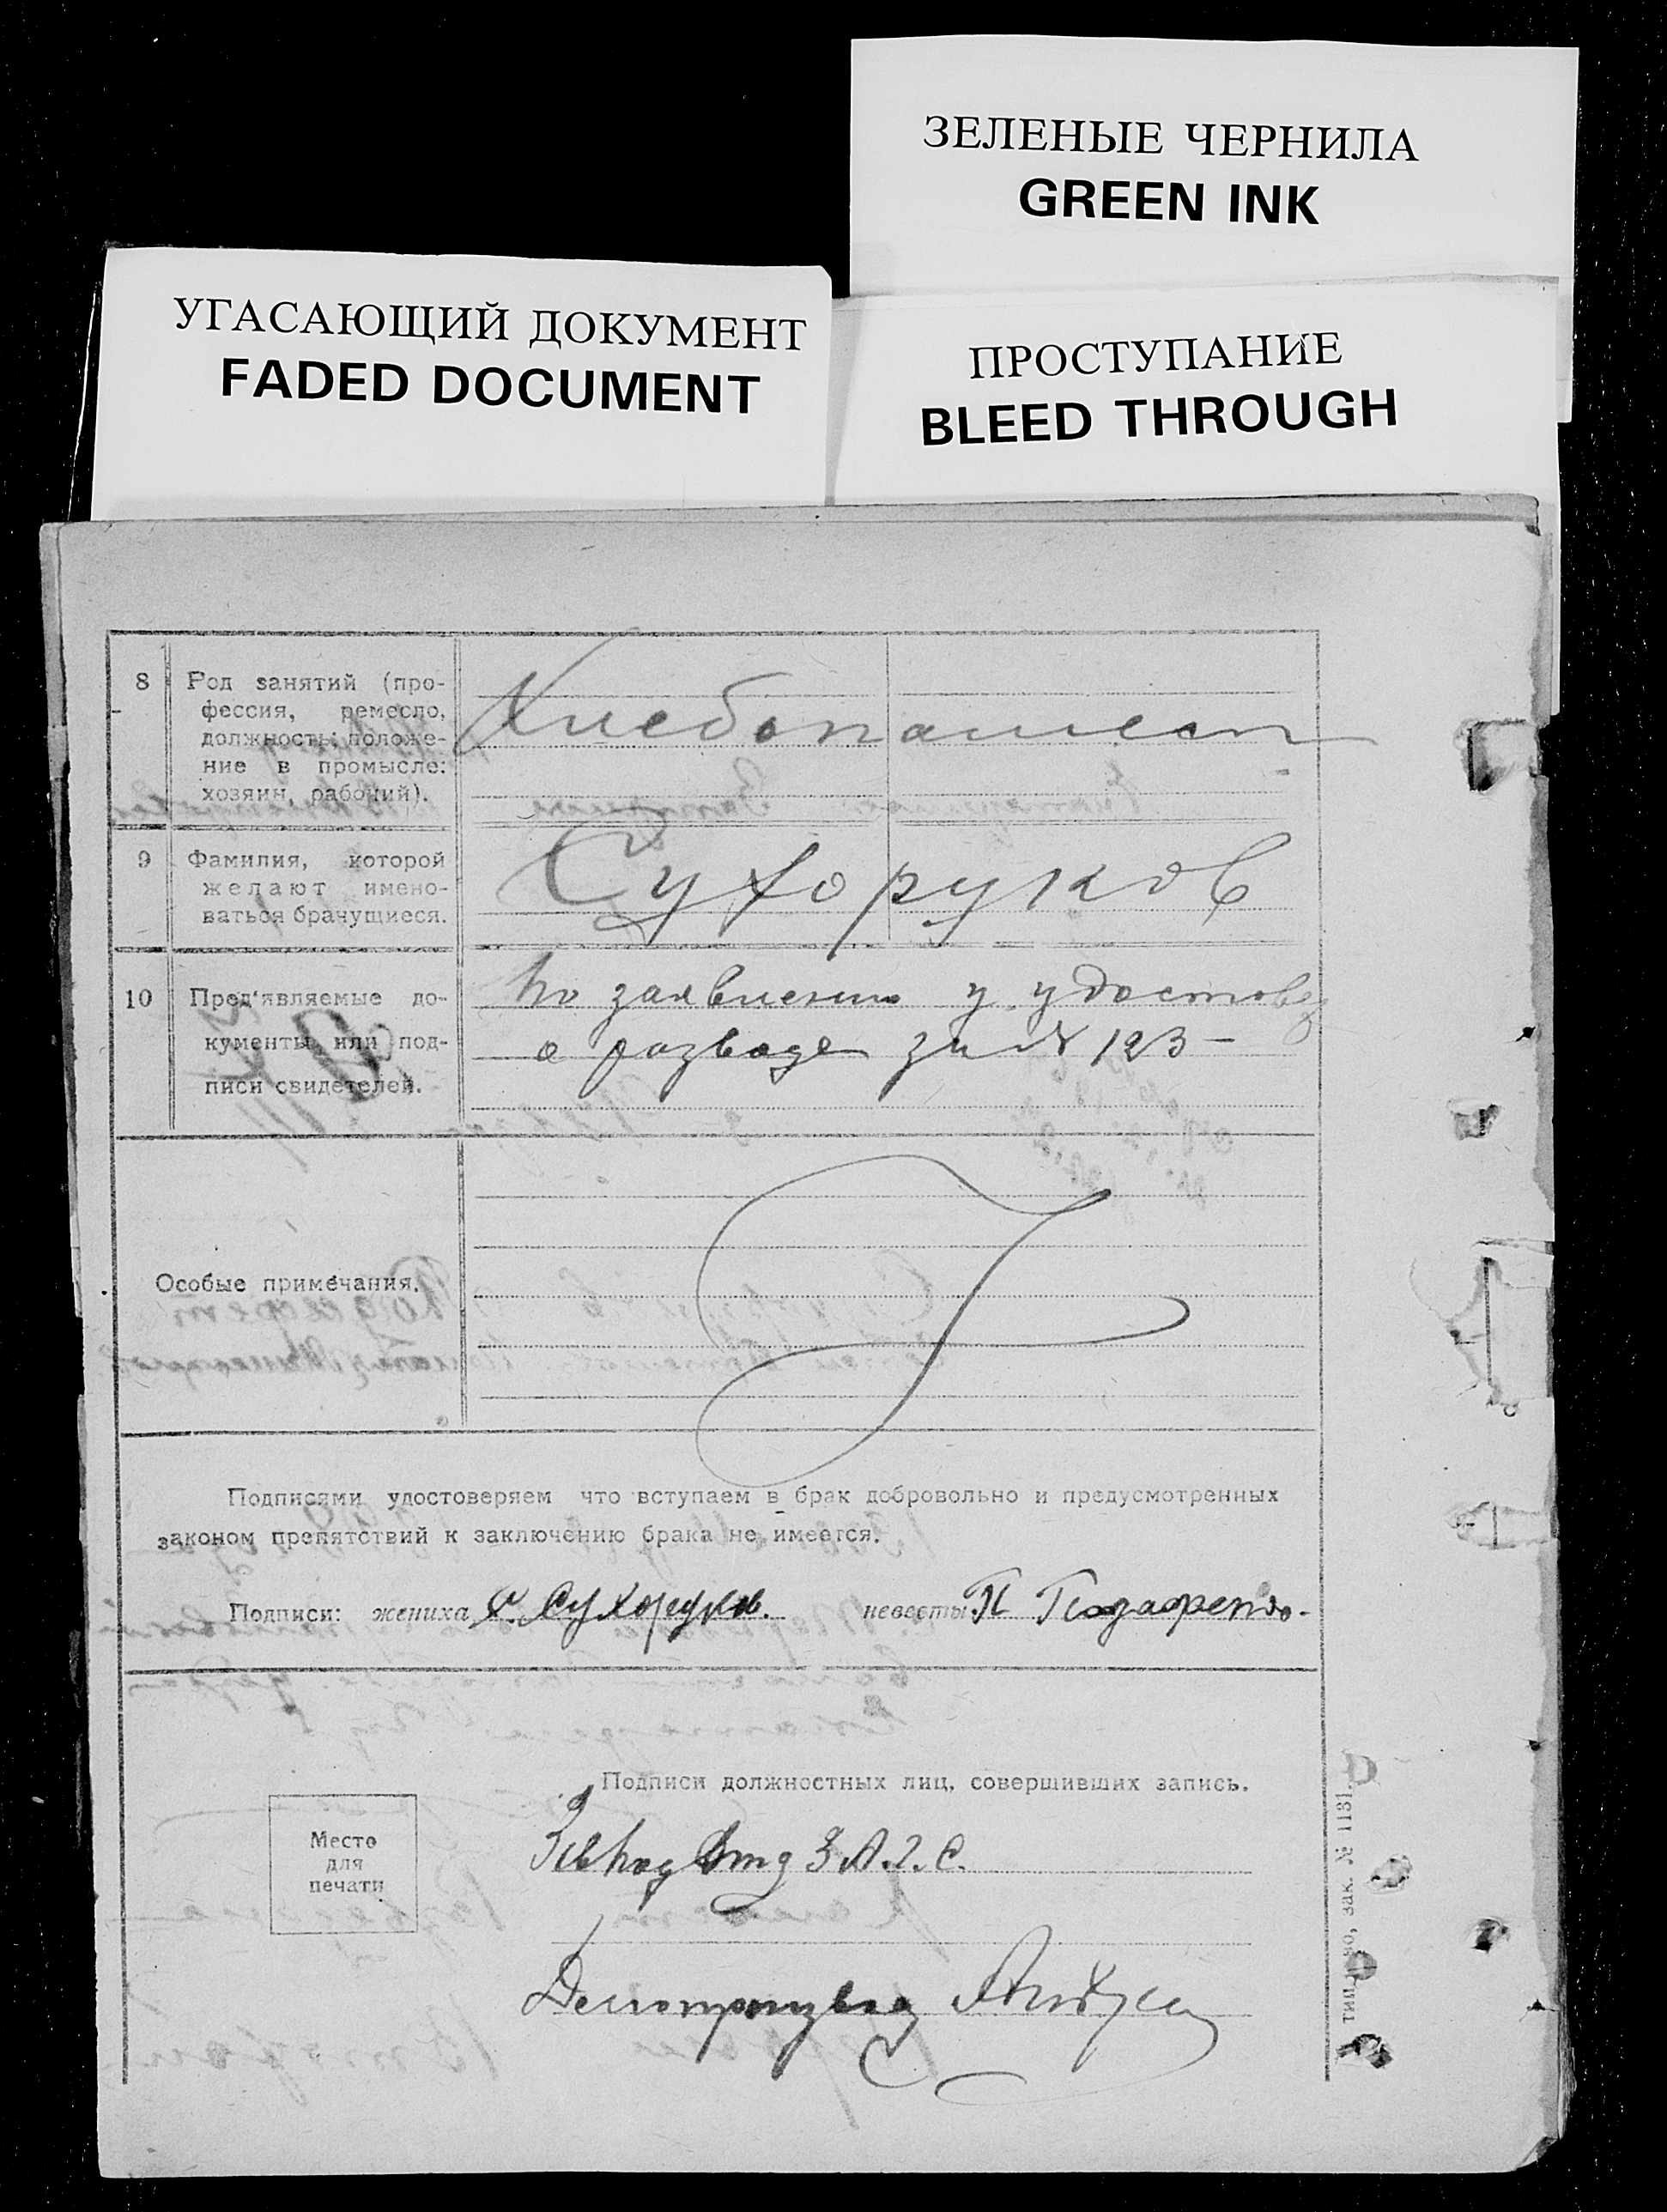 ЗЕЛЕНЫЕ ЧЕРНИЛА
GREEN INK
УГАСАЮЩИЙ ДОКУМЕНТ
FADED DOCUMENT
ПРОСТУПАНИЕ
BLEED THROUGH
8 Род занятий (про-
фессия, ремесло,
должность: положе-
ние в промысле:
хозяин, рабочий).
Хлебопашест
9 Фамилия, которой
желают имено-
ваться брачущиеся.
Сухоруков
10 Пред'являемые до-
кументы или под-
писи свидетелей.
по заявлению у удостов
о разводе за № 123 —
Особые примечания.
Подписями удостоверяем что вступаем в брак добровольно и предусмотренных
законом препятствий к заключению брака не имеется.
Подписи: жениха Сухоруков. невесты П
Подписи должностных лиц, совершивших запись.
Место
для
печати
З.А.Г.С.
Делопроизвод
зак. № 1131